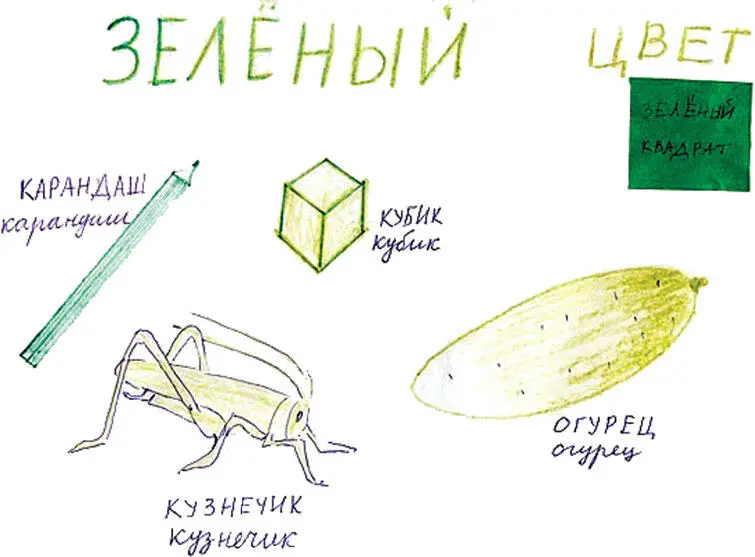 ЗЕЛЁНЫЙ ЦВЕТ
ЗЕЛЁНЫЙ
КВАДРАТ
КАРАНДАШ
карандаш
КУБИК
кубик
ОГУРЕЦ
огурец
КУЗНЕЧИК
кузнечик